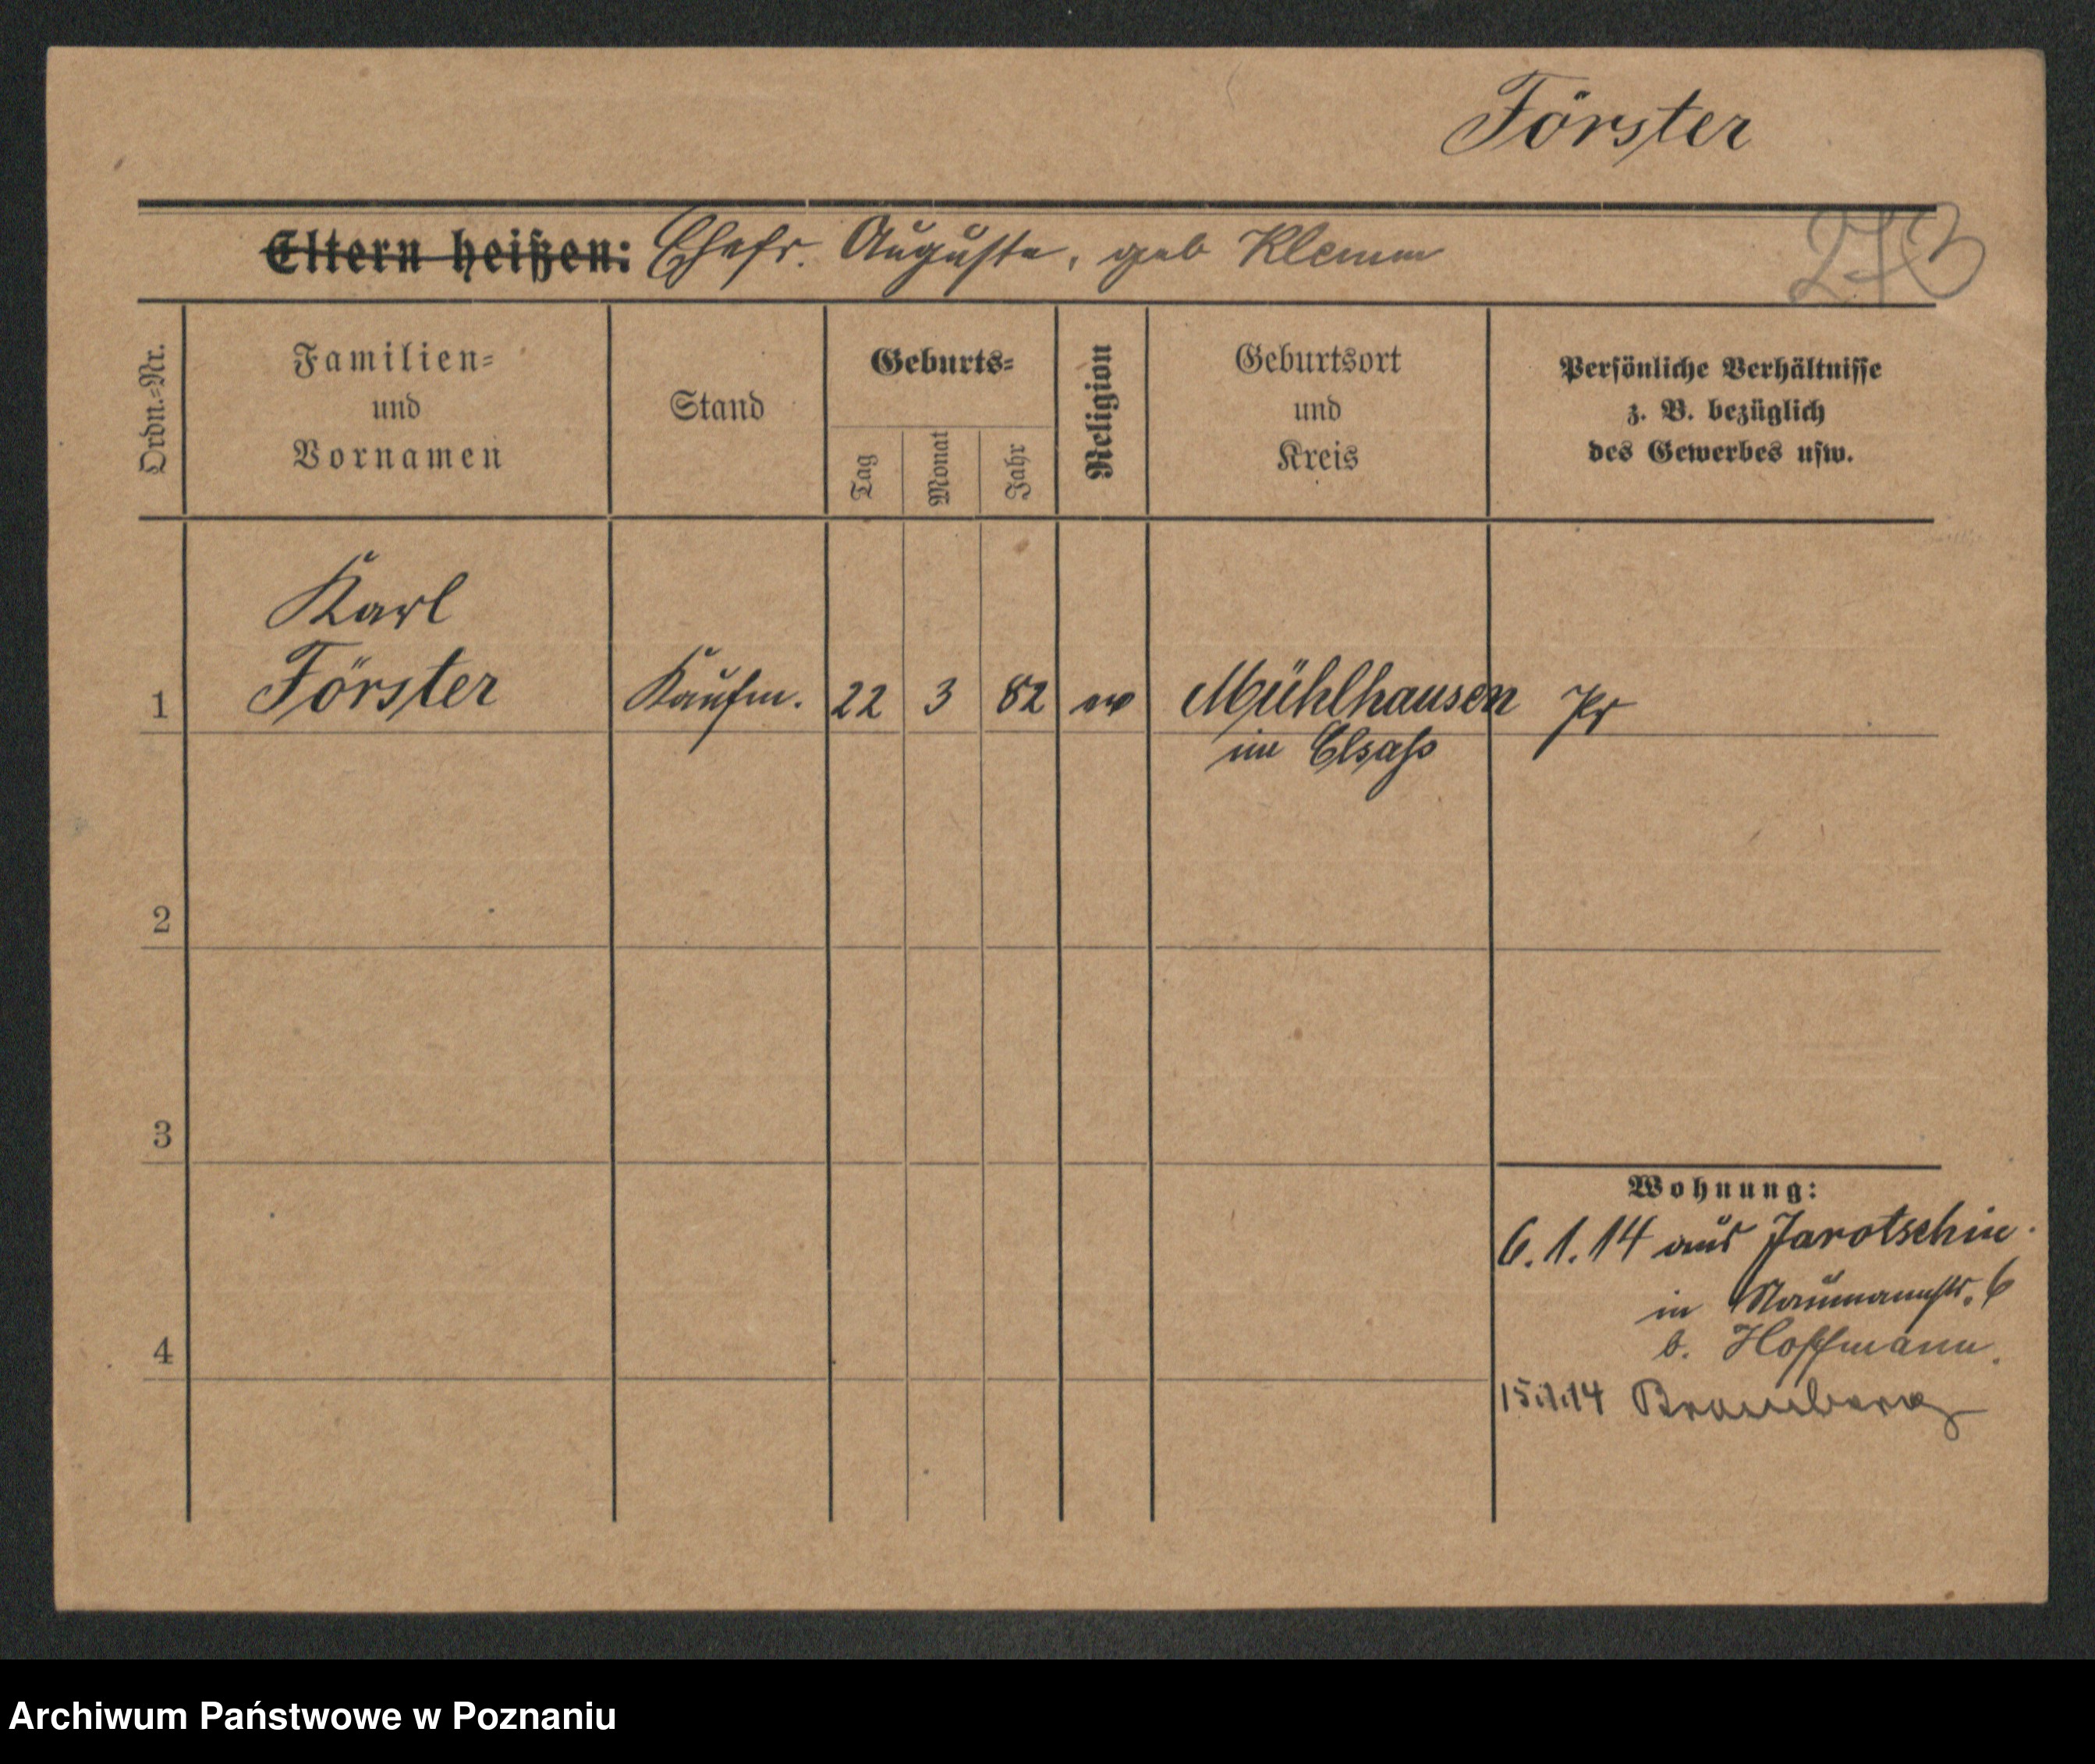 Förster
Eltern heißen: Ehefr. Auguste, geb Klemm
Ordn.=Nr.
Familien=
und
Vornamen
Stand
Geburts=
Tag
Monat
Jahr
Religion
Geburtsort
und
Kreis
Persönliche Verhältnisse
z. B. bezüglich
des Gewerbes usw.
Karl
1 Förster Kaufm. 22 3 82 ev Mühlhausen Pr
im Elsaß
2
3
Wohnung:
6.1.14 aus Jarotschin.
in Naumannstr. 6
4
b. Hoffmann.
15.1.14 Bromberg
Archiwum Państwowe w Poznaniu